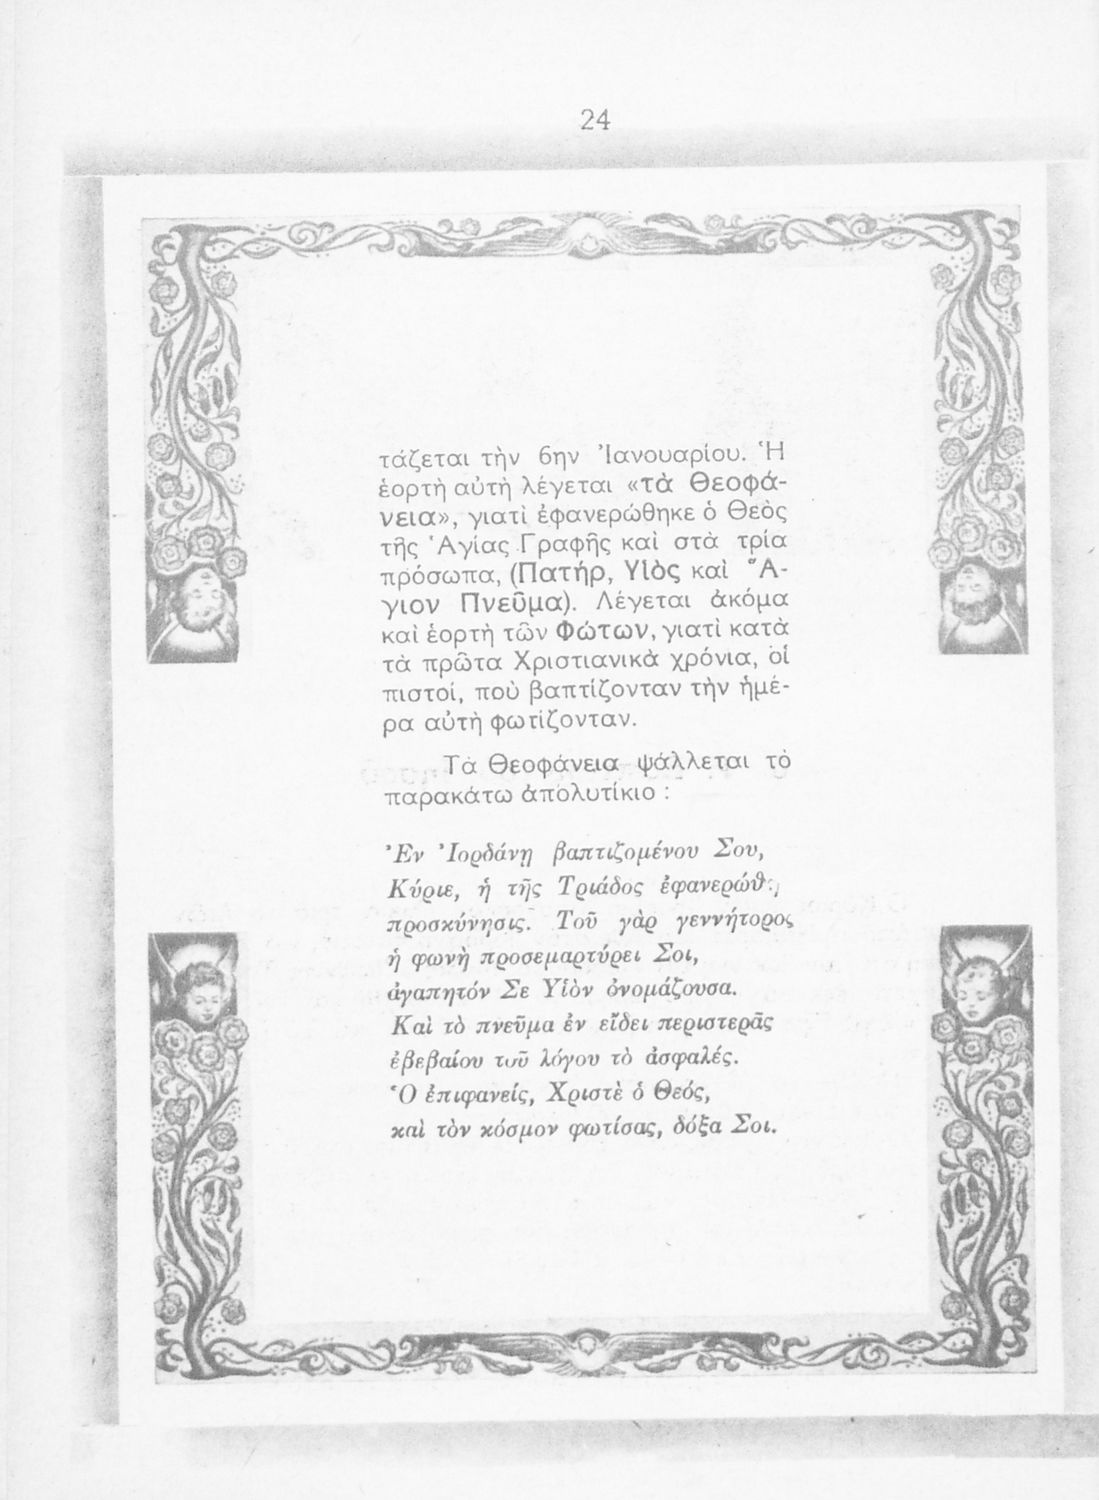 24
τάζεται τὴν 6ην Ἰανουαρίου. Ἡ
ἑορτὴ αὐτὴ λέγεται «τὰ Θεοφά-
νεια», γιατὶ ἐφανερώθηκε ὁ Θεὸς
τῆς Ἁγίας Γραφῆς καὶ στὰ τρία
πρόσωπα, (Πατήρ, Υἱὸς καὶ Ἅ-
γιον Πνεῦμα). Λέγεται ἀκόμα
καὶ ἑορτὴ τῶν Φώτων, γιατὶ κατὰ
τὰ πρῶτα Χριστιανικὰ χρόνια, οἱ
πιστοί, ποὺ βαπτίζονταν τὴν ἡμέ-
ρα αὐτὴ φωτίζονταν.
Τὰ Θεοφάνεια ψάλλεται τὸ
παρακάτω ἀπολυτίκιο :
Ἐν Ἰορδάνῃ βαπτιζομένου Σου,
Κύριε, ἡ τῆς Τριάδος
προσκύνησις. Τοῦ γὰρ γεννήτορος
ἡ φωνὴ προσεμαρτύρει Σοι,
ἀγαπητόν Σε Υἱὸν ὀνομάζουσα.
Καὶ τὸ πνεῦμα ἐν εἴδει περιστερᾶς
ἐβεβαίου τοῦ λόγου τὸ ἀσφαλές.
Ὁ ἐπιφανείς, Χριστὲ ὁ Θεός,
καὶ τὸν κόσμον φωτίσας, δόξα Σοι.